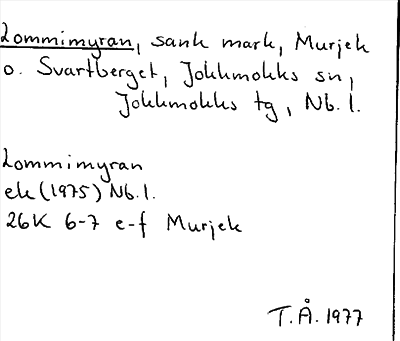 Lommimyran, sank mark, Murjek
o. Svartberget, Jokkmokks sn,
Jokkmokks tg, Nb. l.
Lommimyran
ek (1975) Nb. l.
26K 6-7 e-f Murjek
T.Å. 1977